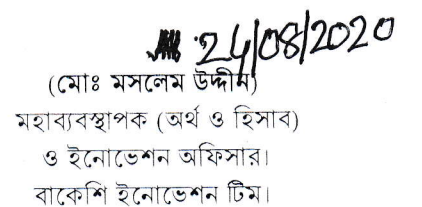 24/08/2020
(মোঃ মসলেম উদ্দীন)
মহাব্যবস্থাপক (অর্থ ও হিসাব)
ও ইনোভেশন অফিসার।
বাকেশি ইনোভেশন টিম।